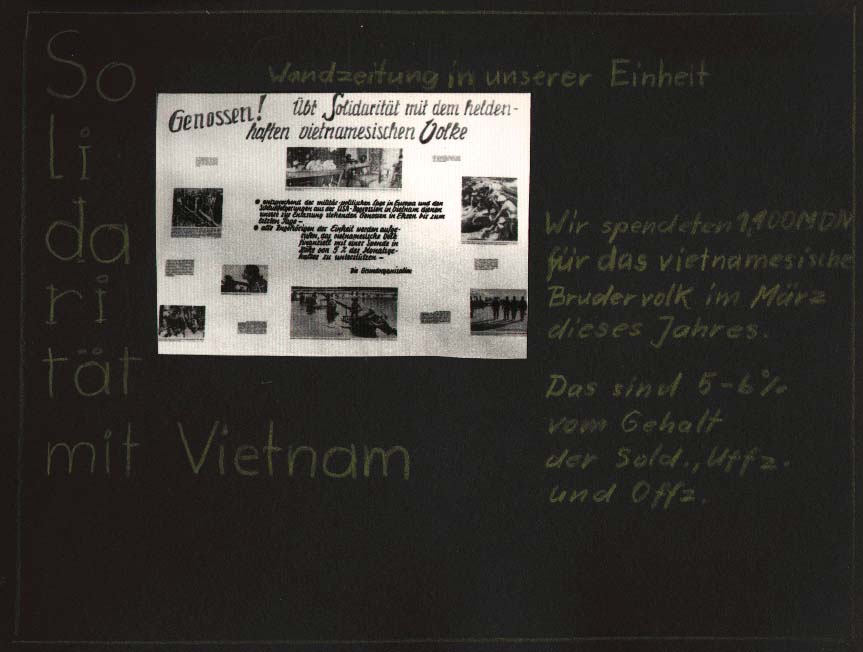 So
li
da
ri
tät
mit Vietnam
Wandzeitung in unserer Einheit
Genossen! Übt Solidarität mit dem helden-
haften vietnamesischen Volke
entsprechend der militär-politischen Lage in Europa und den
Schlußfolgerungen aus der USA-Aggression in Vietnam dienen
unsere zur Entlassung stehenden Genossen in Ehren bis zum
letzten Tage -
alle Angehörigen der Einheit werden aufge-
rufen, das vietnamesische Volk
finanziell mit einer Spende in
Höhe von 5 % des Monatsge-
haltes zu unterstützen -
Die Grundorganisation
Wir spendeten 1400 MDN
für das vietnamesische
Brudervolk im März
dieses Jahres.
Das sind 5-6%
vom Gehalt
der Sold., Uffz.
und Offz.